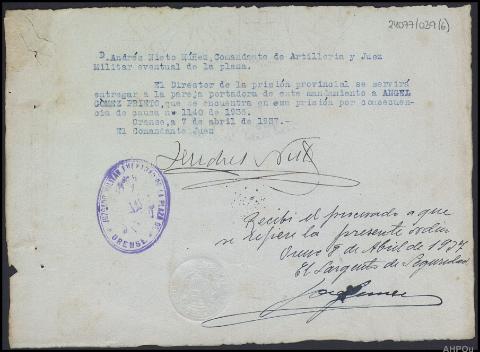 24077/029(6)
D. Andrés Nieto Núñez, Comandante de Artilleria y Juez
Militar eventual de la plaza.
El Director de la prisión provincial se servirá
entregar a la pareja portadora de este mandamiento a ANGEL
GOMEZ PRIETO, que se encuentra en esa prisión por consecuen-
cia de causa nº 1140 de 1936.
Orense, a 7 de abril de 1937.-
El Comandante Juez
Andres Nieto
JUZGADO MILITAR EVENTUAL DE LA PLAZA DE
ORENSE
Recibí el procesado a que
se refiere la presente orden
Orense 8 de Abril de 1937
El Sargento de Seguridad
AHPOu